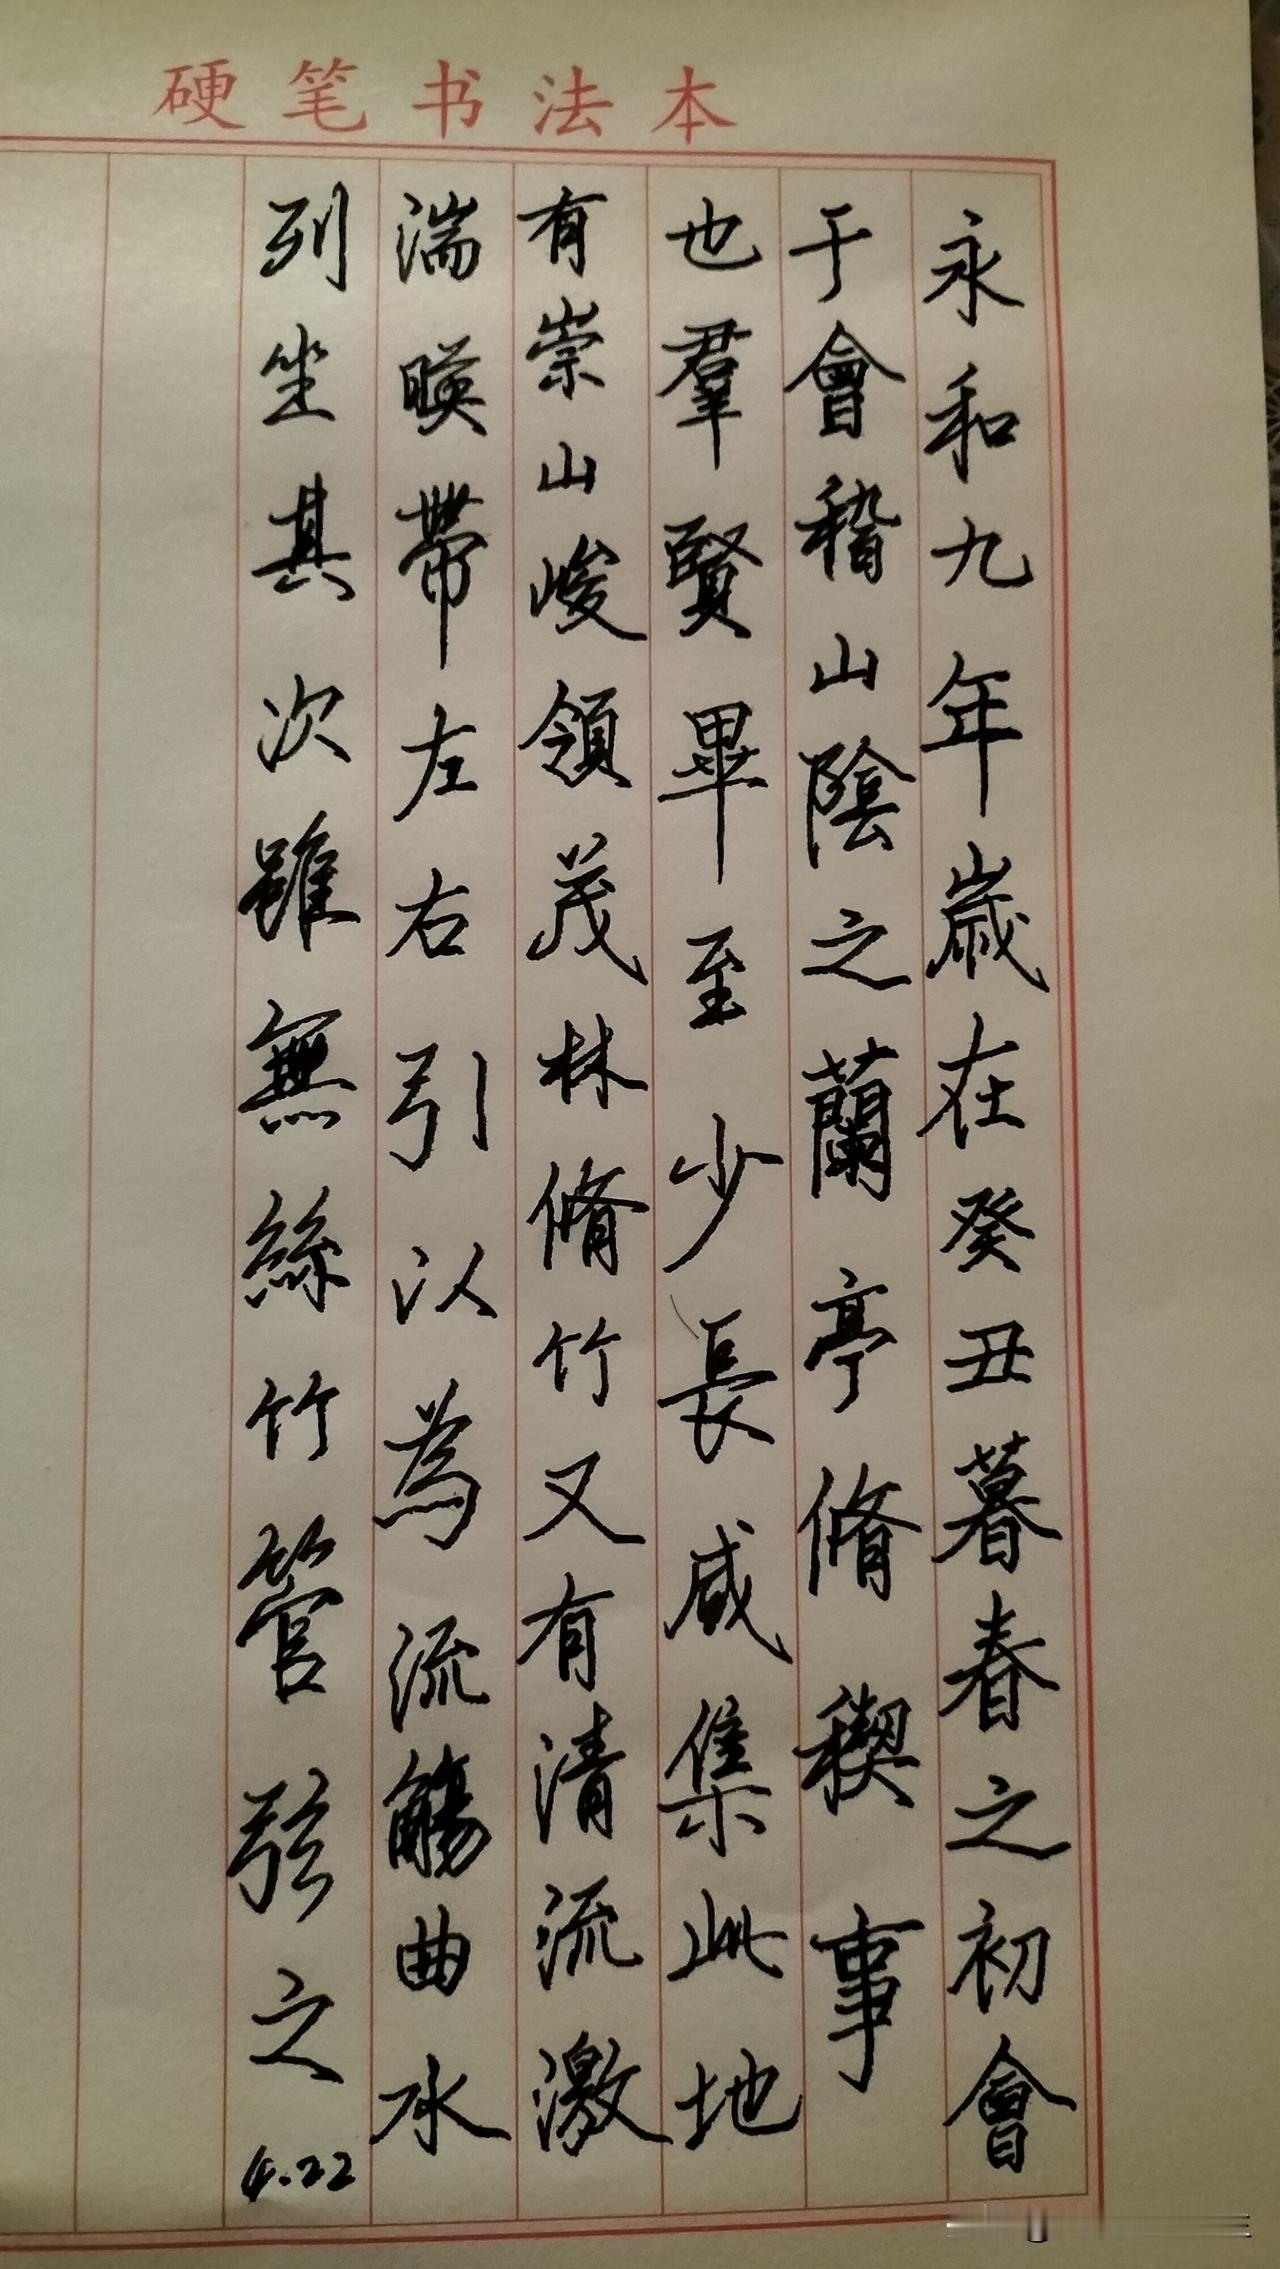 硬笔书法本
永和九年歲在癸丑暮春之初會
于會稽山陰之蘭亭脩稧事
也羣賢畢至少長咸集此地
有崇山峻領茂林脩竹又有清流激
湍暎帶左右引以為流觴曲水
列坐其次雖無絲竹管弦之
4.22